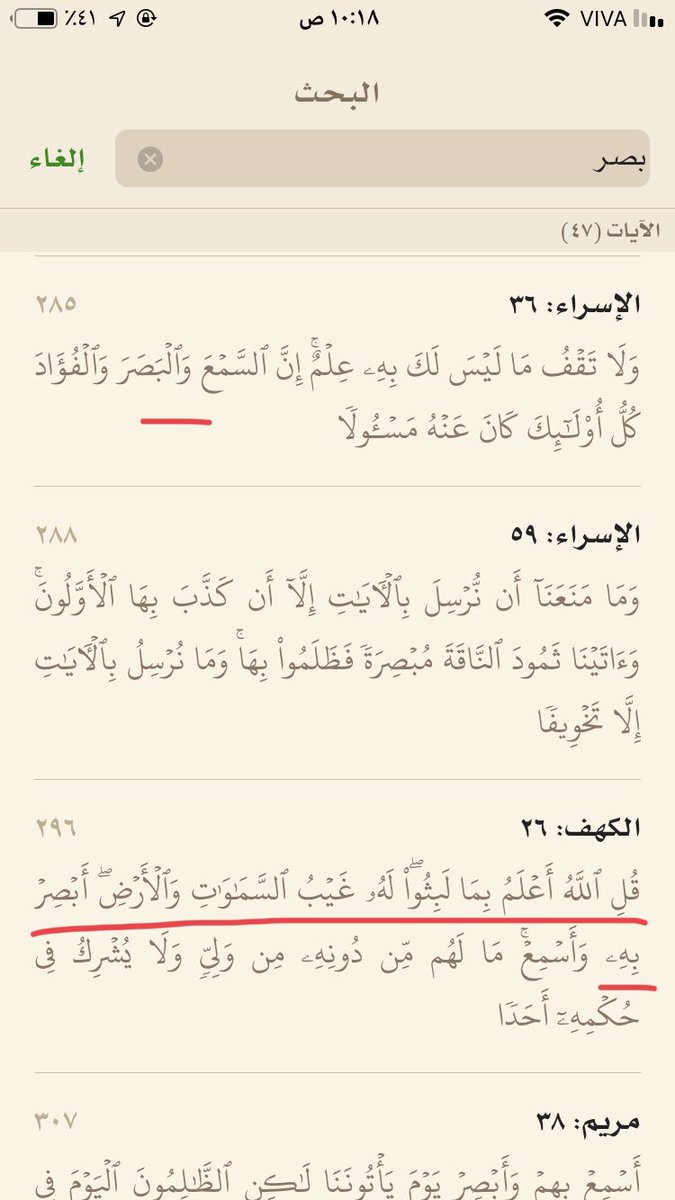 ١٠:١٨ ص VIVA ٤١٪
البحث
بصر إلغاء
الآيات (٤٧)
الإسراء: ٣٦ ٢٨٥
وَلَا تَقۡفُ مَا لَيۡسَ لَكَ بِهِۦ عِلۡمٌۚ إِنَّ ٱلسَّمۡعَ وَٱلۡبَصَرَ وَٱلۡفُؤَادَ
كُلُّ أُوْلَٰٓئِكَ كَانَ عَنۡهُ مَسۡـُٔولٗا
الإسراء: ٥٩ ٢٨٨
وَمَا مَنَعَنَآ أَن نُّرۡسِلَ بِٱلۡأٓيَٰتِ إِلَّآ أَن كَذَّبَ بِهَا ٱلۡأَوَّلُونَۚ
وَءَاتَيۡنَا ثَمُودَ ٱلنَّاقَةَ مُبۡصِرَةٗ فَظَلَمُواْ بِهَاۚ وَمَا نُرۡسِلُ بِٱلۡأٓيَٰتِ
إِلَّا تَخۡوِيفٗا
الكهف: ٢٦ ٢٩٦
قُلِ ٱللَّهُ أَعۡلَمُ بِمَا لَبِثُواْۖ لَهُۥ غَيۡبُ ٱلسَّمَٰوَٰتِ وَٱلۡأَرۡضِۖ أَبۡصِرۡ
بِهِۦ وَأَسۡمِعۡۚ مَا لَهُم مِّن دُونِهِۦ مِن وَلِيّٖ وَلَا يُشۡرِكُ فِي
حُكۡمِهِۦٓ أَحَدٗا
مريم: ٣٨ ٣٠٧
أَسۡمِعۡ بِهِمۡ وَأَبۡصِرۡ يَوۡمَ يَأۡتُونَنَا لَٰكِنِ ٱلظَّٰلِمُونَ ٱلۡيَوۡمَ فِي